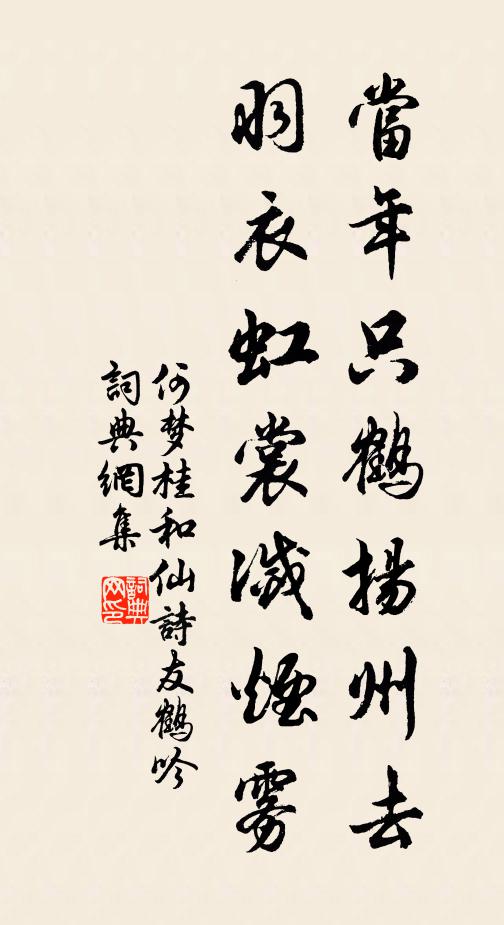 當年只鶴揚州去
羽衣虹裳濺煙雾
何梦桂和仙詩友鶴吟
詞典網集
詞典网印